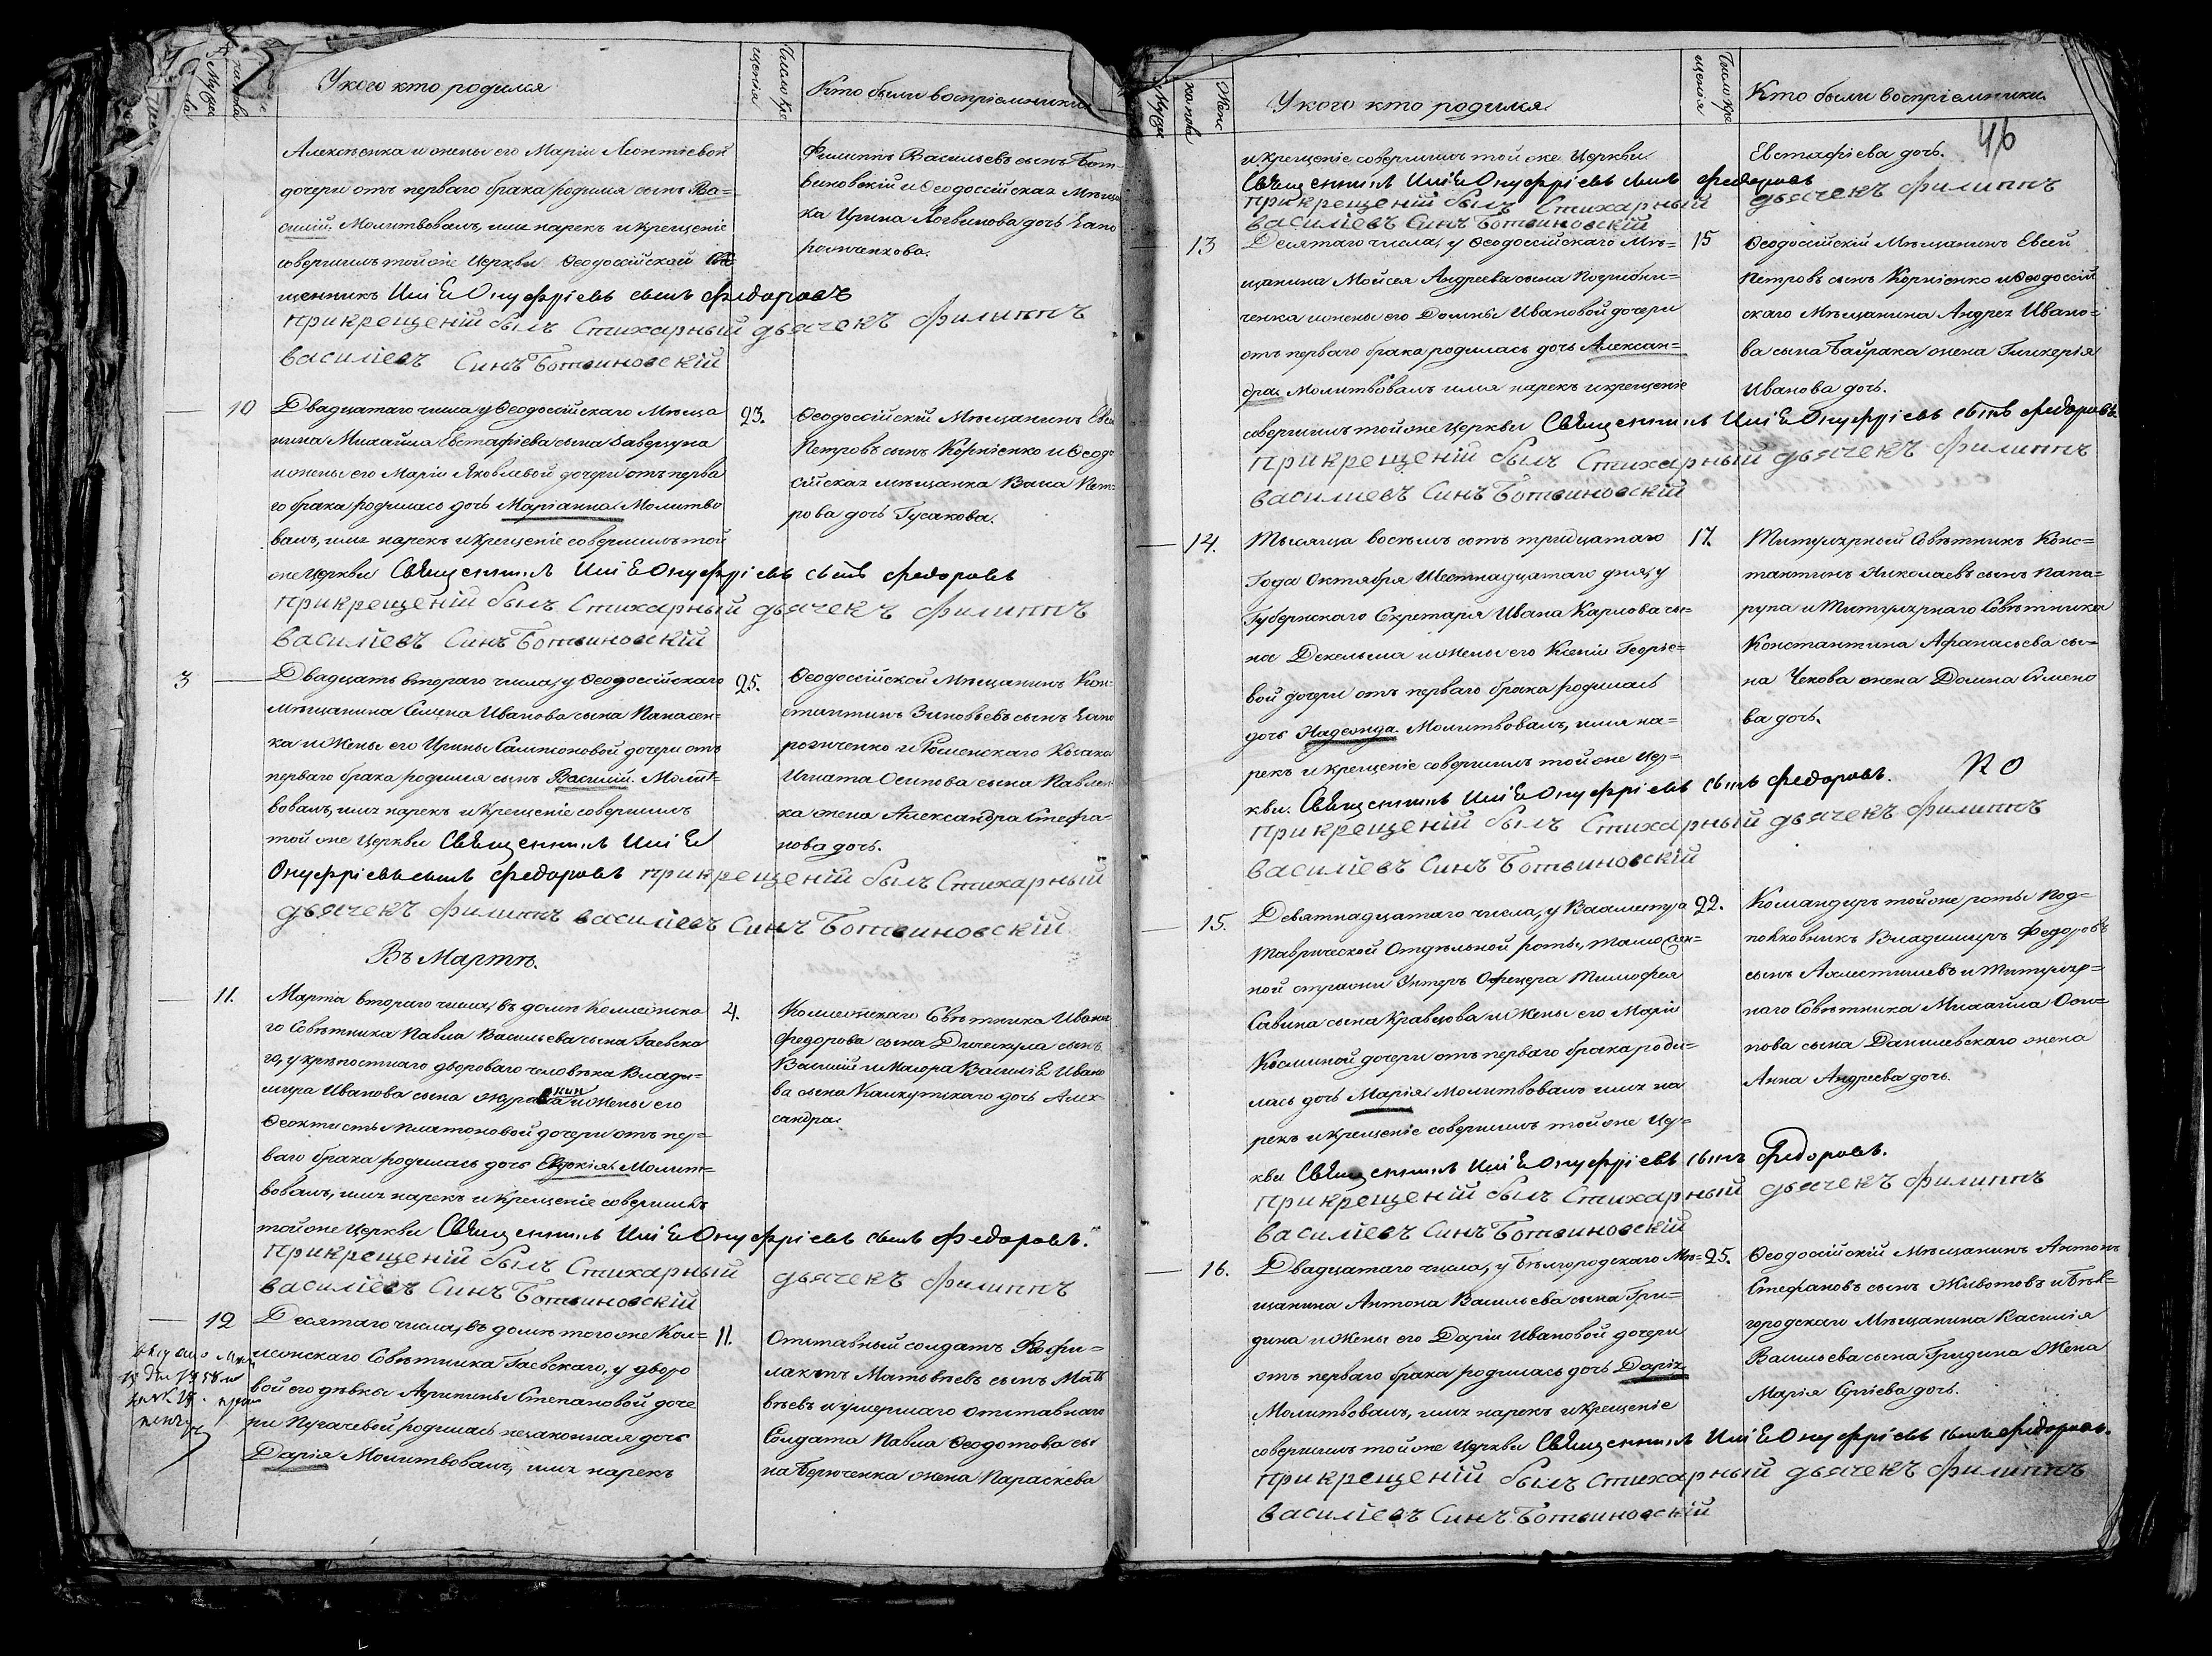 У кого кто родился
Число кре
щенія
Кто были воспріемники
Алексѣенка и жены его Маріи Леонтіевой
дочери отъ перваго брака родился сынъ Ва=
силій. Молитвовалъ, имя нарекъ и крещеніе
совершилъ той же Церкви Ѳеодосійской Свя
щенникъ Онуфріевъ сынъ Федоровъ
при крещеній былъ Стихарный дьячекъ Филиппъ
василіевъ Синъ Ботвиновскій
Филиппъ Васильевъ сынъ Бот=
виновскій и Ѳеодоссійская Мѣща
ка Ирина Логвинова дочь Запо
рожченкова.
10 Двадцатаго числа, у Ѳеодоссійскаго Мѣща
нина Михайла Евстафіева сына Заверзуна
и жены его Маріи Яковлевой дочери отъ перва
го брака родилась дочь Маріанна. Молитво
валъ, имя нарекъ и крещеніе совершилъ той
же Церкви Священникъ Онуфріевъ сынъ Федоровъ
при крещеній былъ Стихарный дьячекъ Филиппъ
василіевъ Синъ Ботвиновскій
23.
Ѳеодоссійскій Мѣщанинъ Евсей
Петровъ сынъ Корніенко и Ѳеодо
сійская мѣщанка Васа Пет=
рова дочь Гусакова.
3 Двадцать втораго числа, у Ѳеодоссійскаго
мѣщанина Семена Иванова сына Панасен=
ка и Жены его Ирины Самсоновой дочери отъ
перваго брака родился сынъ Василій. Молит=
вовалъ, имя нарекъ и Крещеніе совершилъ
той же Церкви Священникъ
Онуфріевъ сынъ Федоровъ при крещеній былъ Стихарный
дьячекъ Филиппъ василіевъ Синъ Ботвиновскій
25.
Ѳеодоссійской Мѣщанинъ Кон=
стантинъ Зиновьевъ сынъ Запо
рожченко и Роменскаго Козака
Игната Осипова сына Павлен
ка жена Александра Стефа=
нова дочь.
Въ Мартѣ.
11. Марта втораго числа, въ домѣ Коллежска
го Совѣтника Павла Васильева сына Гаевска
го, у крѣпостнаго двороваго человѣка Влади=
мира Иванова сына и Жены его
Ѳеоктисты Платоновой дочери отъ пер=
ваго брака родилась дочь Евдокія. Молит=
вовалъ, имя нарекъ и Крещеніе совершилъ
той же Церкви Священникъ Онуфріевъ сынъ Федоровъ.
при крещеній былъ Стихарный дьячекъ Филиппъ
василіевъ Синъ Ботвиновскій
4.
Коллежскаго Совѣтника Ивана
Федорова сына сынъ
Василій и Маіора Василія Ивано
ва сына дочь Алек=
сандра.
12 Десятаго числа, въ домѣ того же Кол=
лежскаго Совѣтника Гаевскаго, у дворо
вой его дѣвки Агрипины Степановой доче
ри Пугачевой родилась незаконная дочь
Дарія Молитвовалъ, имя нарекъ
11.
Отставный солдатъ Феофи=
лактъ Матвѣевъ сынъ Мат
вѣевъ и умершаго отставнаго
Солдата Павла Ѳеодотова сы
на Берюченка жена Параскева
Муж
Женс
каго пола
У кого кто родился
Число кре
щенія
Кто были воспріемники.
46
и крещеніе совершилъ той же Церкви
Священникъ Онуфріевъ сынъ Федоровъ
при крещеній былъ Стихарный дьячекъ Филиппъ
василіевъ Синъ Ботвиновскій
Евстафіева дочь.
13 Десятаго числа, у Ѳеодоссійскаго Мѣ=
щанина Мойсея Андреева сына Погрибни=
ченка и жены его Домны Ивановой дочери
отъ перваго брака родилась дочь Алексан=
дра. Молитвовалъ имя нарекъ и крещеніе
совершилъ той же Церкви Священникъ Онуфріевъ сынъ Федоровъ.
при крещеній былъ Стихарный дьячекъ Филиппъ
василиевъ Синъ Ботвиновскій
15
Ѳеодоссійскій Мѣщанинъ Евсей
Петровъ сынъ Корніенко и Ѳеодоссій
скаго Мѣщанина Андрея Ивано=
ва сына Байрака жена Гликерія
Иванова дочь.
14. Тысяща восѣмъ сотъ тридцатаго
Года Октября Шестнадцатаго дня, у
Губернскаго Секретаря Ивана Карлова сы=
на Декельма и Жены его Ксеніи Георгіе=
вой дочери отъ перваго брака родилась
дочь Надежда. Молитвовалъ, имя на=
рекъ и крещеніе совершилъ той же Цер=
кви. Священникъ Онуфріевъ сынъ Федоровъ.
при крещеній былъ Стихарный дьячекъ Филиппъ
василіевъ Синъ Ботвиновскій
17.
Титулярный Совѣтникъ Конс=
тантинъ Николаевъ сынъ Папа=
рупа и Титулярнаго Совѣтника
Константина Афанасьева сы=
на Чехова жена Домна Семено
ва дочь.
15. Девятнадцатаго числа, у Вахмистра
Таврической Отдѣльной роты, таможен=
ной стражи Унтеръ Офецера Тимофея
Савина сына Кравцова и Жены его Маріи
Косминой дочери отъ перваго брака роди=
лась дочь Марія. Молитвовалъ имя на
рекъ и крещеніе совершилъ той же Цер=
кви Священникъ Онуфріевъ сынъ Федоровъ.
при крещеній былъ Стихарный дьячекъ Филиппъ
василіевъ Синъ Ботвиновскій
22.
Командиръ той же роты Под=
полковникъ Владимиръ Федоровъ
сынъ Ахлестишевъ и Титуляр=
наго Совѣтника Михайла Оси=
пова сына Данилевскаго жена
Анна Андреева дочь.
16. Двадцатаго числа, у Бѣлгородскаго Мѣ=
щанина Антона Васильева сына Гри=
дина и Жены его Даріи Ивановой дочери
отъ перваго брака родилась дочь Дарія
Молитвовалъ, имя нарекъ и крещеніе
совершилъ той же Церкви Священникъ Онуфріевъ сынъ Федоровъ.
при крещеній былъ Стихарный дьячекъ Филиппъ
василіевъ Синъ Ботвиновскій
25.
Ѳеодосійскій Мѣщанинъ Антонъ
Стефановъ сынъ Животовъ и Бѣл=
городскаго Мѣщанина Василія
Васильева сына Гридина Жена
Марія Сергіева дочь.